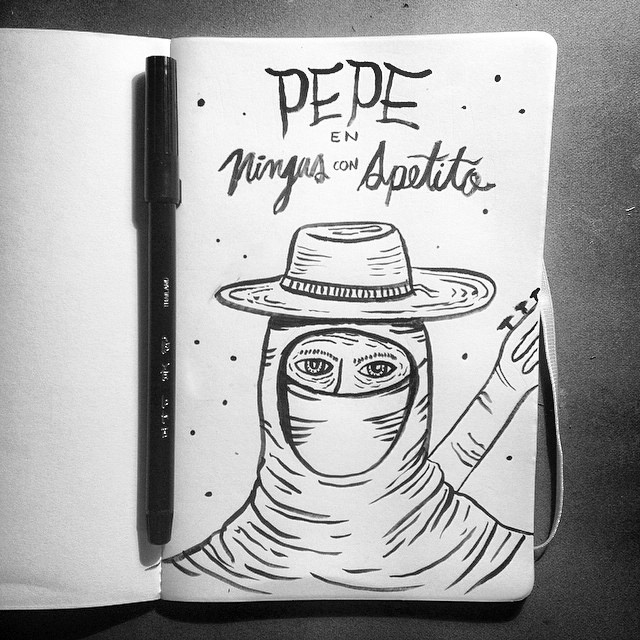 PEPE
EN
Ninjas CON Apetito